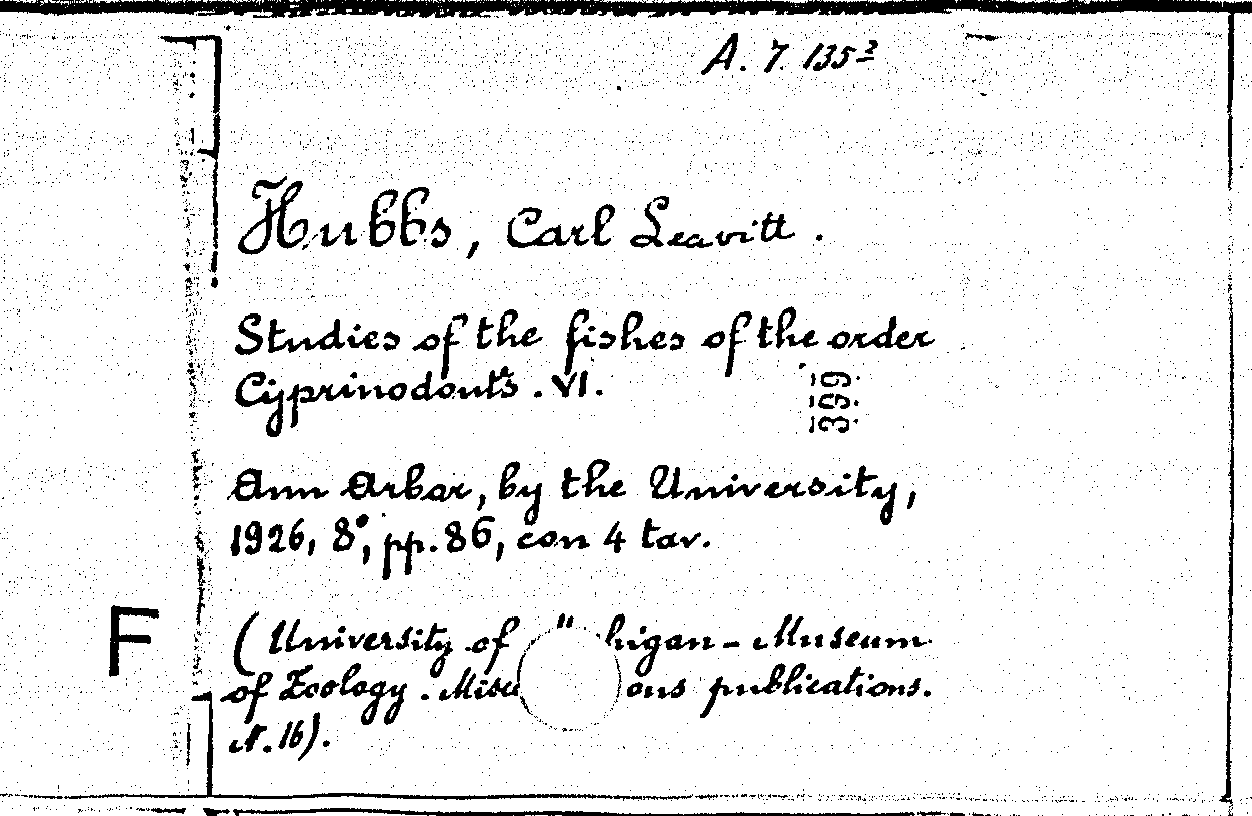 A. 7. 135²
Hubbs, Carl Leavitt.
Studies of the fishes of the order
Cyprinodonts. VI.
399
Ann Arbor, by the University,
1926, 8°, pp. 86, con 4 tav.
F
(University of higan - Museum
of Zoology. Misc ous publications.
N. 16).